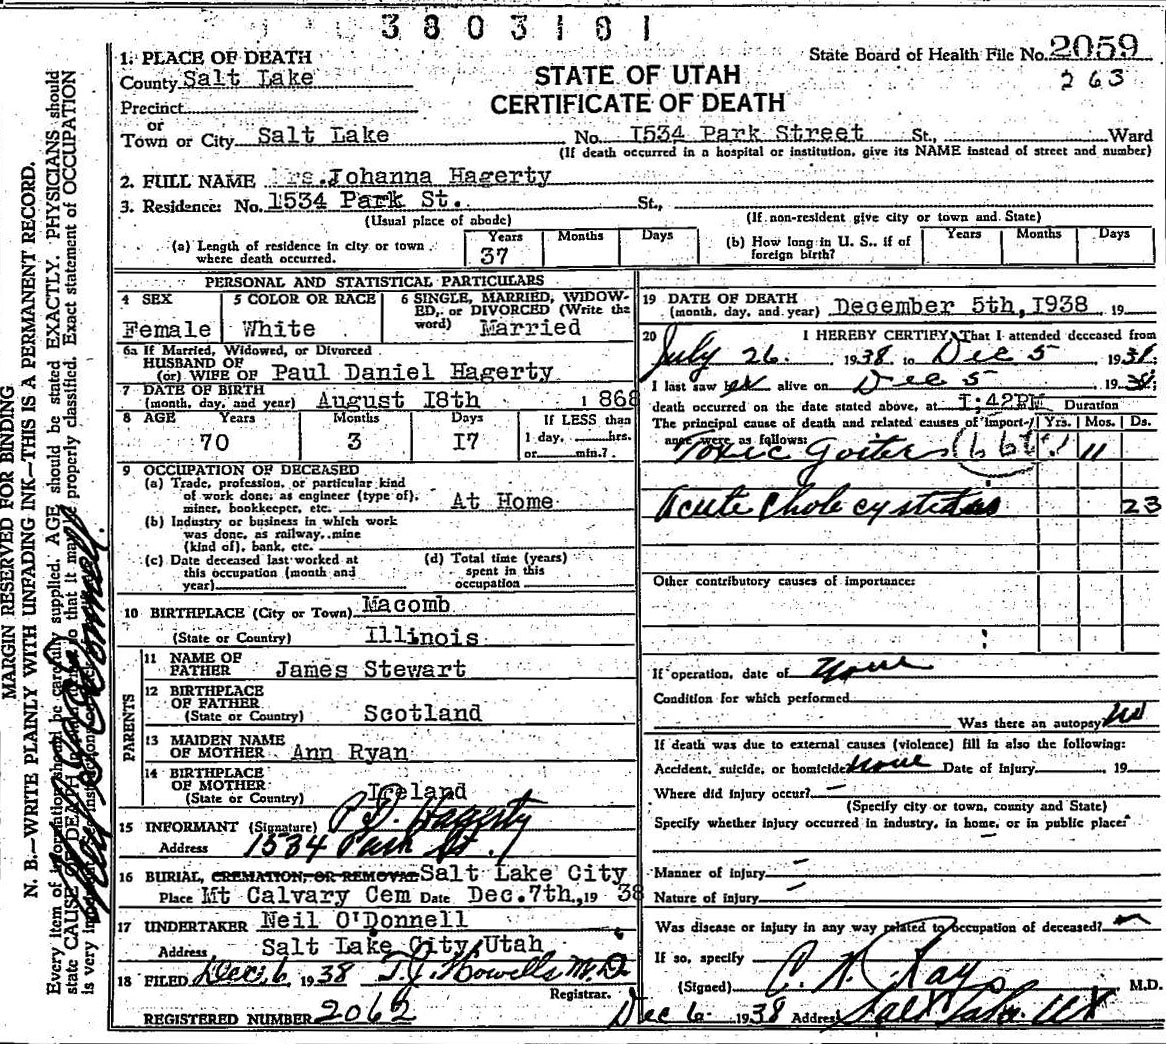 3803181
State Board of Health File No. 2059
263
1. PLACE OF DEATH
County Salt Lake
STATE OF UTAH
CERTIFICATE OF DEATH
Precinct
or
Town or City Salt Lake No. 1534 Park Street St., Ward
(If death occurred in a hospital or institution, give its NAME instead of street and number)
2. FULL NAME Mrs. Johanna Hagerty
3. Residence: No. 1534 Park St. St.,
(Usual place of abode) (If non-resident give city or town and State)
(a) Length of residence in city or town where death occurred. Years 37 Months Days
(b) How long in U. S., if of foreign birth? Years Months Days
PERSONAL AND STATISTICAL PARTICULARS
4 SEX Female
5 COLOR OR RACE White
6 SINGLE, MARRIED, WIDOWED, or DIVORCED (Write the word) Married
6a If Married, Widowed, or Divorced
HUSBAND OF
(or) WIFE OF Paul Daniel Hagerty
7 DATE OF BIRTH
(month, day, and year) August 18th 1868
8 AGE Years Months Days If LESS than
70 3 17 1 day, hrs.
or min.?
9 OCCUPATION OF DECEASED
(a) Trade, profession, or particular kind
of work done; as engineer (type of),
miner, bookkeeper, etc. At Home
(b) Industry or business in which work
was done, as railway, mine
(kind of), bank, etc.
(c) Date deceased last worked at
this occupation (month and
year)
(d) Total time (years)
spent in this
occupation
10 BIRTHPLACE (City or Town) Macomb
(State or Country) Illinois
PARENTS
11 NAME OF
FATHER James Stewart
12 BIRTHPLACE
OF FATHER
(State or Country) Scotland
13 MAIDEN NAME
OF MOTHER Ann Ryan
14 BIRTHPLACE
OF MOTHER
(State or Country) Ireland
15 INFORMANT (Signature) P. D. Hagerty
Address 1534 Park St.
16 BURIAL, CREMATION, OR REMOVAL Salt Lake City
Place Mt Calvary Cem Date Dec. 7th., 19 38
17 UNDERTAKER Neil O'Donnell
Address Salt Lake City, Utah
18 FILED Dec. 6, 1938 T. J. Howells M.D.
Registrar.
REGISTERED NUMBER 2062
19 DATE OF DEATH
(month, day, and year) December 5th, 1938 19
20 I HEREBY CERTIFY, That I attended deceased from
July 26. 1938 to Dec 5 1938;
I last saw her alive on Dec 5 1938;
death occurred on the date stated above, at 1:42PM Duration
The principal cause of death and related causes of import-
ance were as follows: Yrs. Mos. Ds.
Toxic Goiter 11
Acute Cholecystitis 23
Other contributory causes of importance:
If operation, date of None
Condition for which performed
Was there an autopsy No
If death was due to external causes (violence) fill in also the following:
Accident, suicide, or homicide None Date of injury , 19
Where did injury occur? —
(Specify city or town, county and State)
Specify whether injury occurred in industry, in home, or in public place:
—
Manner of injury —
Nature of injury —
Was disease or injury in any way related to occupation of deceased?
If so, specify
(Signed) M.D.
Dec 6 1938 Address Salt Lake. Ut
MARGIN RESERVED FOR BINDING
N. B.—WRITE PLAINLY WITH UNFADING INK—THIS IS A PERMANENT RECORD.
Every item of information should be carefully supplied. AGE should be stated EXACTLY. PHYSICIANS should
state CAUSE OF DEATH so that it may be properly classified. Exact statement of OCCUPATION
is very